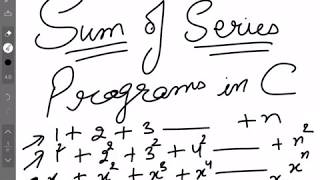 Sum of Series
Programs in C
→ 1 + 2 + 3 —— + n
→ 1² + 2² + 3² + 4² —— + n²
x + x² + x³ + x⁴ —— xⁿ